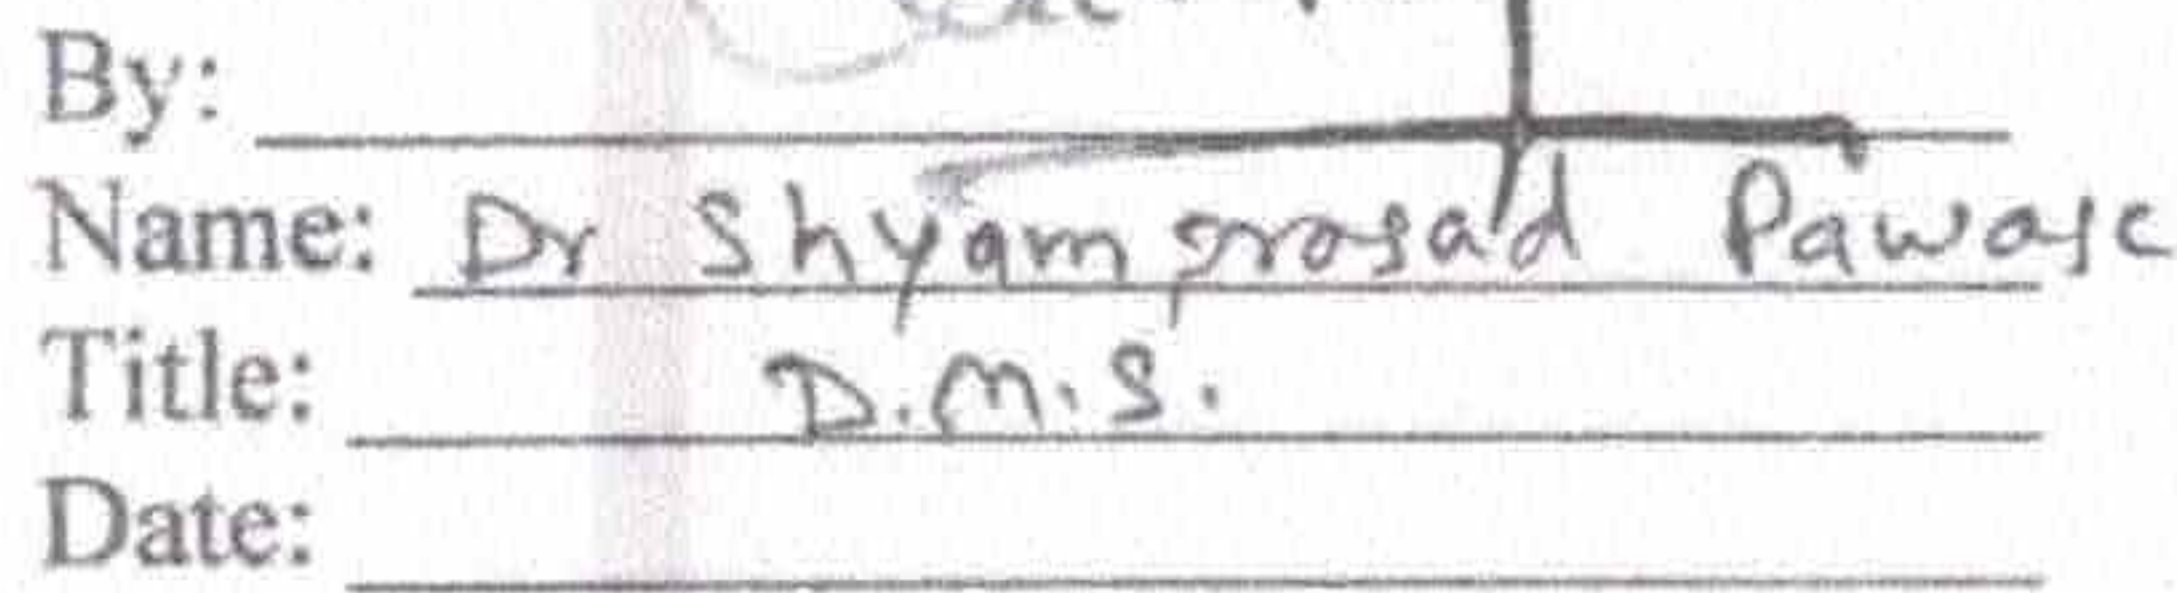 By:
Name: Dr Shyamprasad Pawase
Title: D.M.S.
Date: